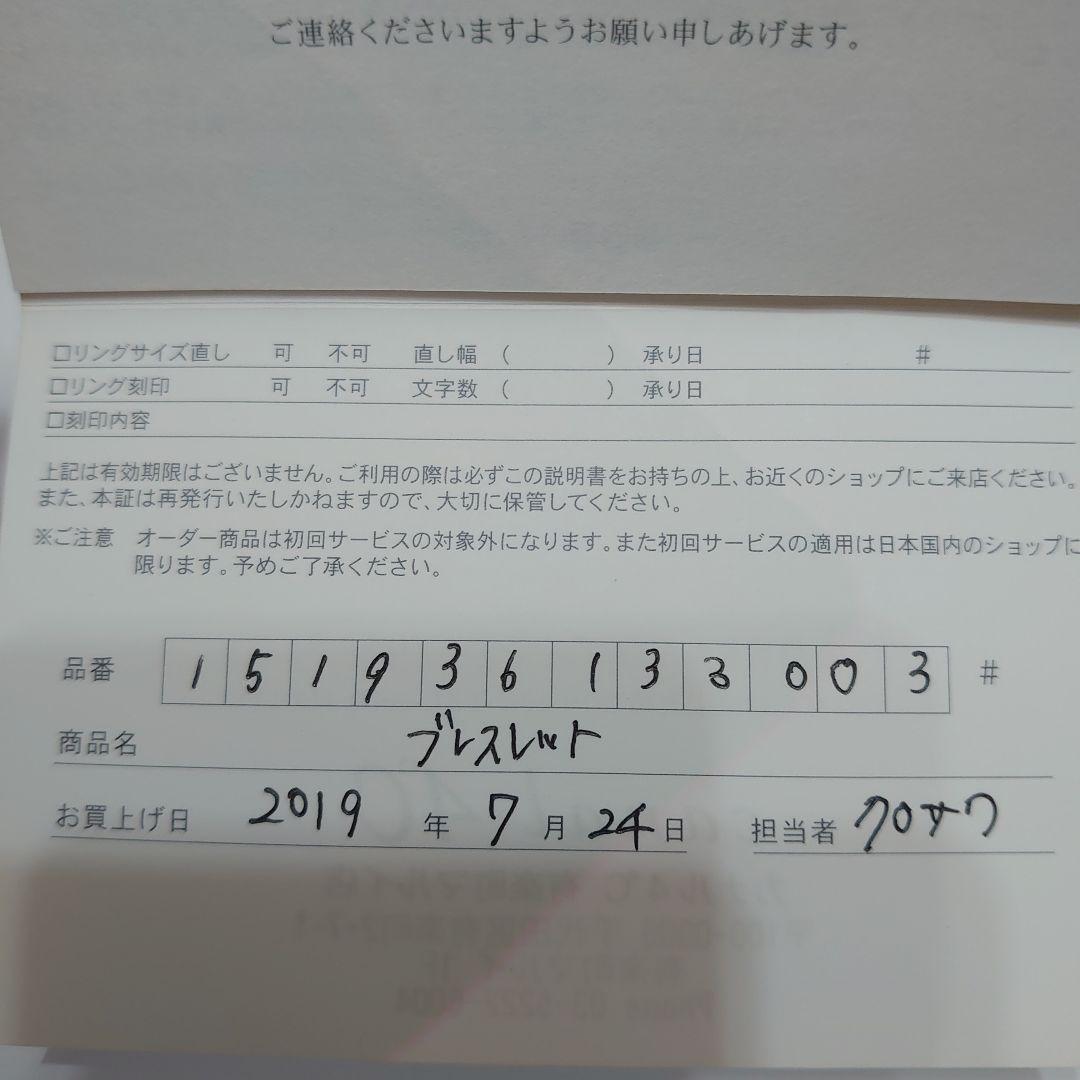 ご連絡くださいますようお願い申しあげます。
□リングサイズ直し 可 不可 直し幅 ( ) 承り日 #
□リング刻印 可 不可 文字数 ( ) 承り日
□刻印内容
上記は有効期限はございません。ご利用の際は必ずこの説明書をお持ちの上、お近くのショップにご来店ください。
また、本証は再発行いたしかねますので、大切に保管してください。
※ご注意 オーダー商品は初回サービスの対象外になります。また初回サービスの適用は日本国内のショップに
限ります。予めご了承ください。
品番 1 5 1 9 3 6 1 3 3 0 0 3 #
商品名 ブレスレット
お買上げ日 2019 年 7 月 24 日 担当者 クロサワ